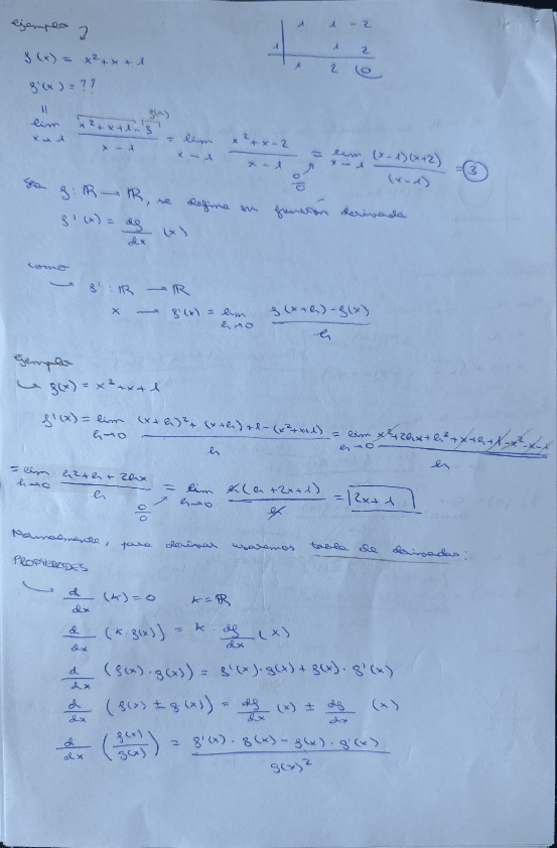 ejemplo
1 1 -2
1 1 2
1 2 0
f(x) = x²+x+1
f'(x) = ??
"
lim x→1 (x²+x+1-3)/(x-1) = lim x→1 (x²+x-2)/(x-1) = 0/0 lim x→1 (x-1)(x+2)/(x-1) = 3
f(x)
Sea f: ℝ → ℝ, se define su función derivada
f'(x) = df/dx (x)
como
f': ℝ → ℝ
x → f'(x) = lim h→0 (f(x+h) - f(x))/h
Ejemplo
↳ f(x) = x²+x+1
f'(x) = lim h→0 ((x+h)² + (x+h) + 1 - (x²+x+1))/h = lim h→0 (x²+2hx+h²+x+h+1-x²-x-1)/h
= lim h→0 (h²+h+2hx)/h = 0/0 lim h→0 h(h+2x+1)/h = 2x+1
Normalmente, para derivar usaremos tabla de derivadas:
PROPIEDADES
d/dx (k) = 0 k = ℝ
d/dx (k·f(x)) = k · df/dx (x)
d/dx (f(x)·g(x)) = f'(x)·g(x) + f(x)·g'(x)
d/dx (f(x) ± g(x)) = df/dx (x) ± dg/dx (x)
d/dx (f(x)/g(x)) = (f'(x)·g(x) - f(x)·g'(x))/g(x)²